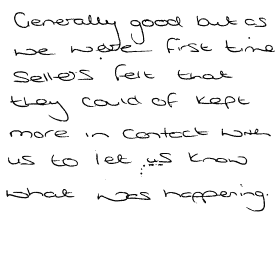 Generally good but as
we were first time
sellers felt that
they could of kept
more in contact with
us to let us know
what was happening.